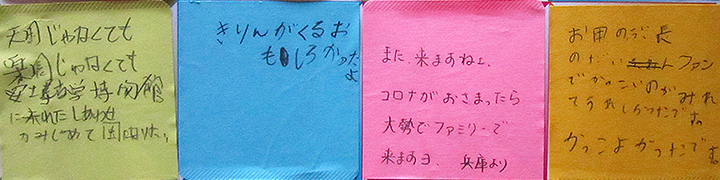 天国じゃなくても
楽園じゃなくても
安土考古学博物館
に来れたしあわせ
かみしめて
きりんがくるお
もしろかった
よ
また、来ますねェ、
コロナがおさまったら
大勢でファミリーで
来ますヨ、 兵庫より
のぶ長
のだいファン
でかっこいのがみれ
てうれしかったです。
かっこよかったです。